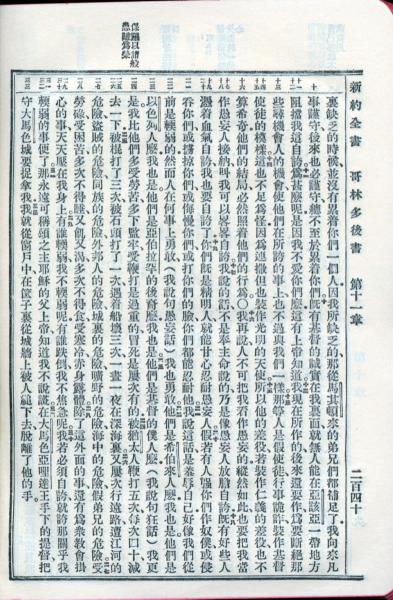 新約全書 哥林多後書 第十一章 二百四十
保羅以諸般
患難為榮
裏缺乏的時候並沒有累着你們一個人因我所缺乏的那從馬其頓來的弟兄們都補足了我向來凡
事謹守後來也必謹守總不至於累着你們既有基督的誠實在我裏面就無人能在亞該亞一帶地方
阻擋我這自誇為甚麼呢是因我不愛你們麼這有上帝知道我現在所作的後來還要作為要斷絕那
些尋機會人的機會使他們在所誇的事上也不過與我們一樣那等人是假使徒行事詭詐裝作基督
使徒的模樣這也不足為怪因為連撒但也裝作光明的天使所以他的差役若裝作仁義的差役也不
算希奇他們的結局必然照着他們的行為○我再說人不可把我看作愚妄的縱然如此也要把我當
作愚妄人接納叫我可以畧畧自誇我說的話不是奉主命說的乃是像愚妄人放膽自誇既有好些人
憑着血氣自誇我也要自誇了你們既是精明人就能甘心忍耐愚妄人假若有人強你們作奴僕或侵
吞你們或擄掠你們或侮慢你們或打你們的臉你們都能忍耐他我說這話是羞辱自己好像我們從
前是輭弱的然而人在何事上勇敢(我說句愚妄話)我也勇敢他們是希伯來人麼我也是他們是
以色列人麼我也是他們是亞伯拉罕的後裔麼我也是他們是基督的僕人麼(我說句狂話)我更
是我比他們多受勞苦多下監牢受鞭打是過重的冒死是屢次有的被猶太人鞭打五次每次四十減
去一下被棍打了三次被石頭打了一次遇着船壞三次一晝一夜在深海裏又屢次行遠路遭江河的
危險盜賊的危險同族的危險外邦人的危險城裏的危險曠野的危險海中的危險假弟兄的危險受
勞碌受困苦多次不得睡又飢又渴多次不得食受寒冷赤身露體除了這外面的事還有為衆教會掛
心的事天天壓在我身上有誰輭弱我不輭弱呢有誰跌倒我不焦急呢我若必須自誇就誇那關乎我
輭弱的事便了那永遠可稱頌之主耶穌的父上帝知道我不說謊在大馬色亞哩達王手下的提督把
守大馬色城要捉拿我我就從窗戶中在筐子裏從城牆上被人縋下去脫離了他的手